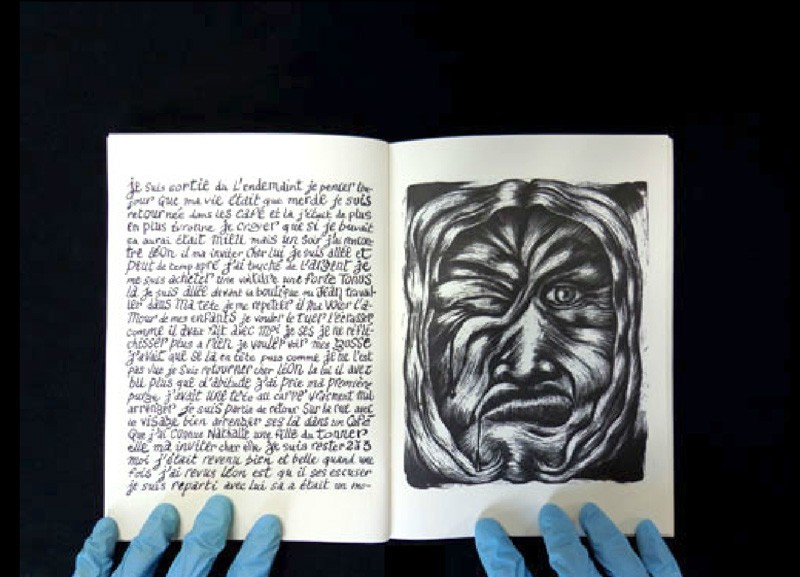 je suis sortie du L'endemaint je penser tou-
jour que ma vie était que merde je suis
retournée dans les café et la j'était de plus
en plus ivronne je croyer que si je buvait
sa aurai était mieu mais un soir j'ai rencon-
tré LéON il ma inviter cher lui je suis allée et
peut de temp apré j'ai touché de L'argent je
me suis acheter une voiture une forte Tonus
là je suis allée devant la boutique ou Jean travail-
ler dans ma tete je me repeter il ma voler L'a-
mour de mes enfants je vouler le tuer L'écrasser
comme il avait fait avec moi je ses je ne réflé-
chisser plus a rien je vouler voir mes gosse
j'avait que se la en tete puis comme je ne l'est
pas vue je suis retourner cher LéON la lui il avec
bu plus que d'abitude j'ai prie ma première
purge j'avait une tete au carré vraiment mal
arranger je suis partie de retour sur la rue avec
un visage bien arranger ses la dans un Café
Que j'ai connue Nathalie une fille du tonner
elle ma inviter cher elle je suis rester 2 a 3
moi j'était revenu bien et belle quand une
fois j'ai revus Léon est qu il ses escuser
je suis reparti avec lui sa a était un mo-